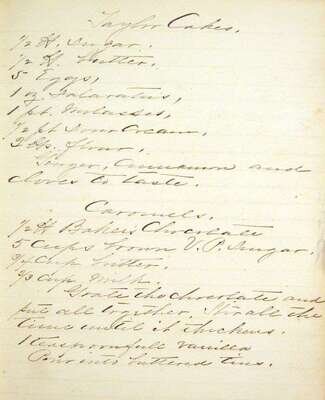 Taylor Cakes.
1/2 lb. Sugar.
1/2 lb. butter.
5 Eggs,
1 oz Salaratus,
1 pt. Molasses,
1/2 pt Sour Cream,
2 lbs. flour.
Ginger, Cinnamon and
cloves to taste.
Caromels.
1/2 lb Baker's Chocolate
5 Cups brown V. P. Sugar.
3/4 Cup butter.
2/3 Cup Milk.
Grate the chocolate and
put all together. Stir all the
time until it thickens.
1 teaspoonfull vanilla
Pour into buttered tins.